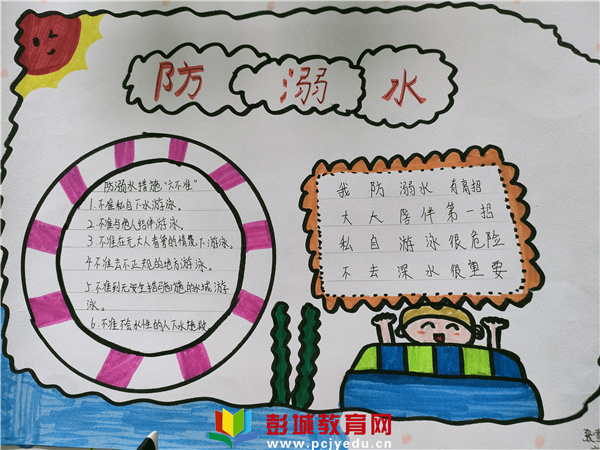 防溺水
防溺水措施“六不准”
1.不准私自下水游泳。
2.不准与他人结伴游泳。
3.不准在无大人看管的情况下游泳。
4.不准去不正规的地方游泳。
5.不准到无安全措施的水域游
泳。
6.不准不会水性的人下水施救
我防溺水有高招
大人陪伴第一招
私自游泳很危险
不去深水很重要
彭城教育网
www.pcjyedu.cn